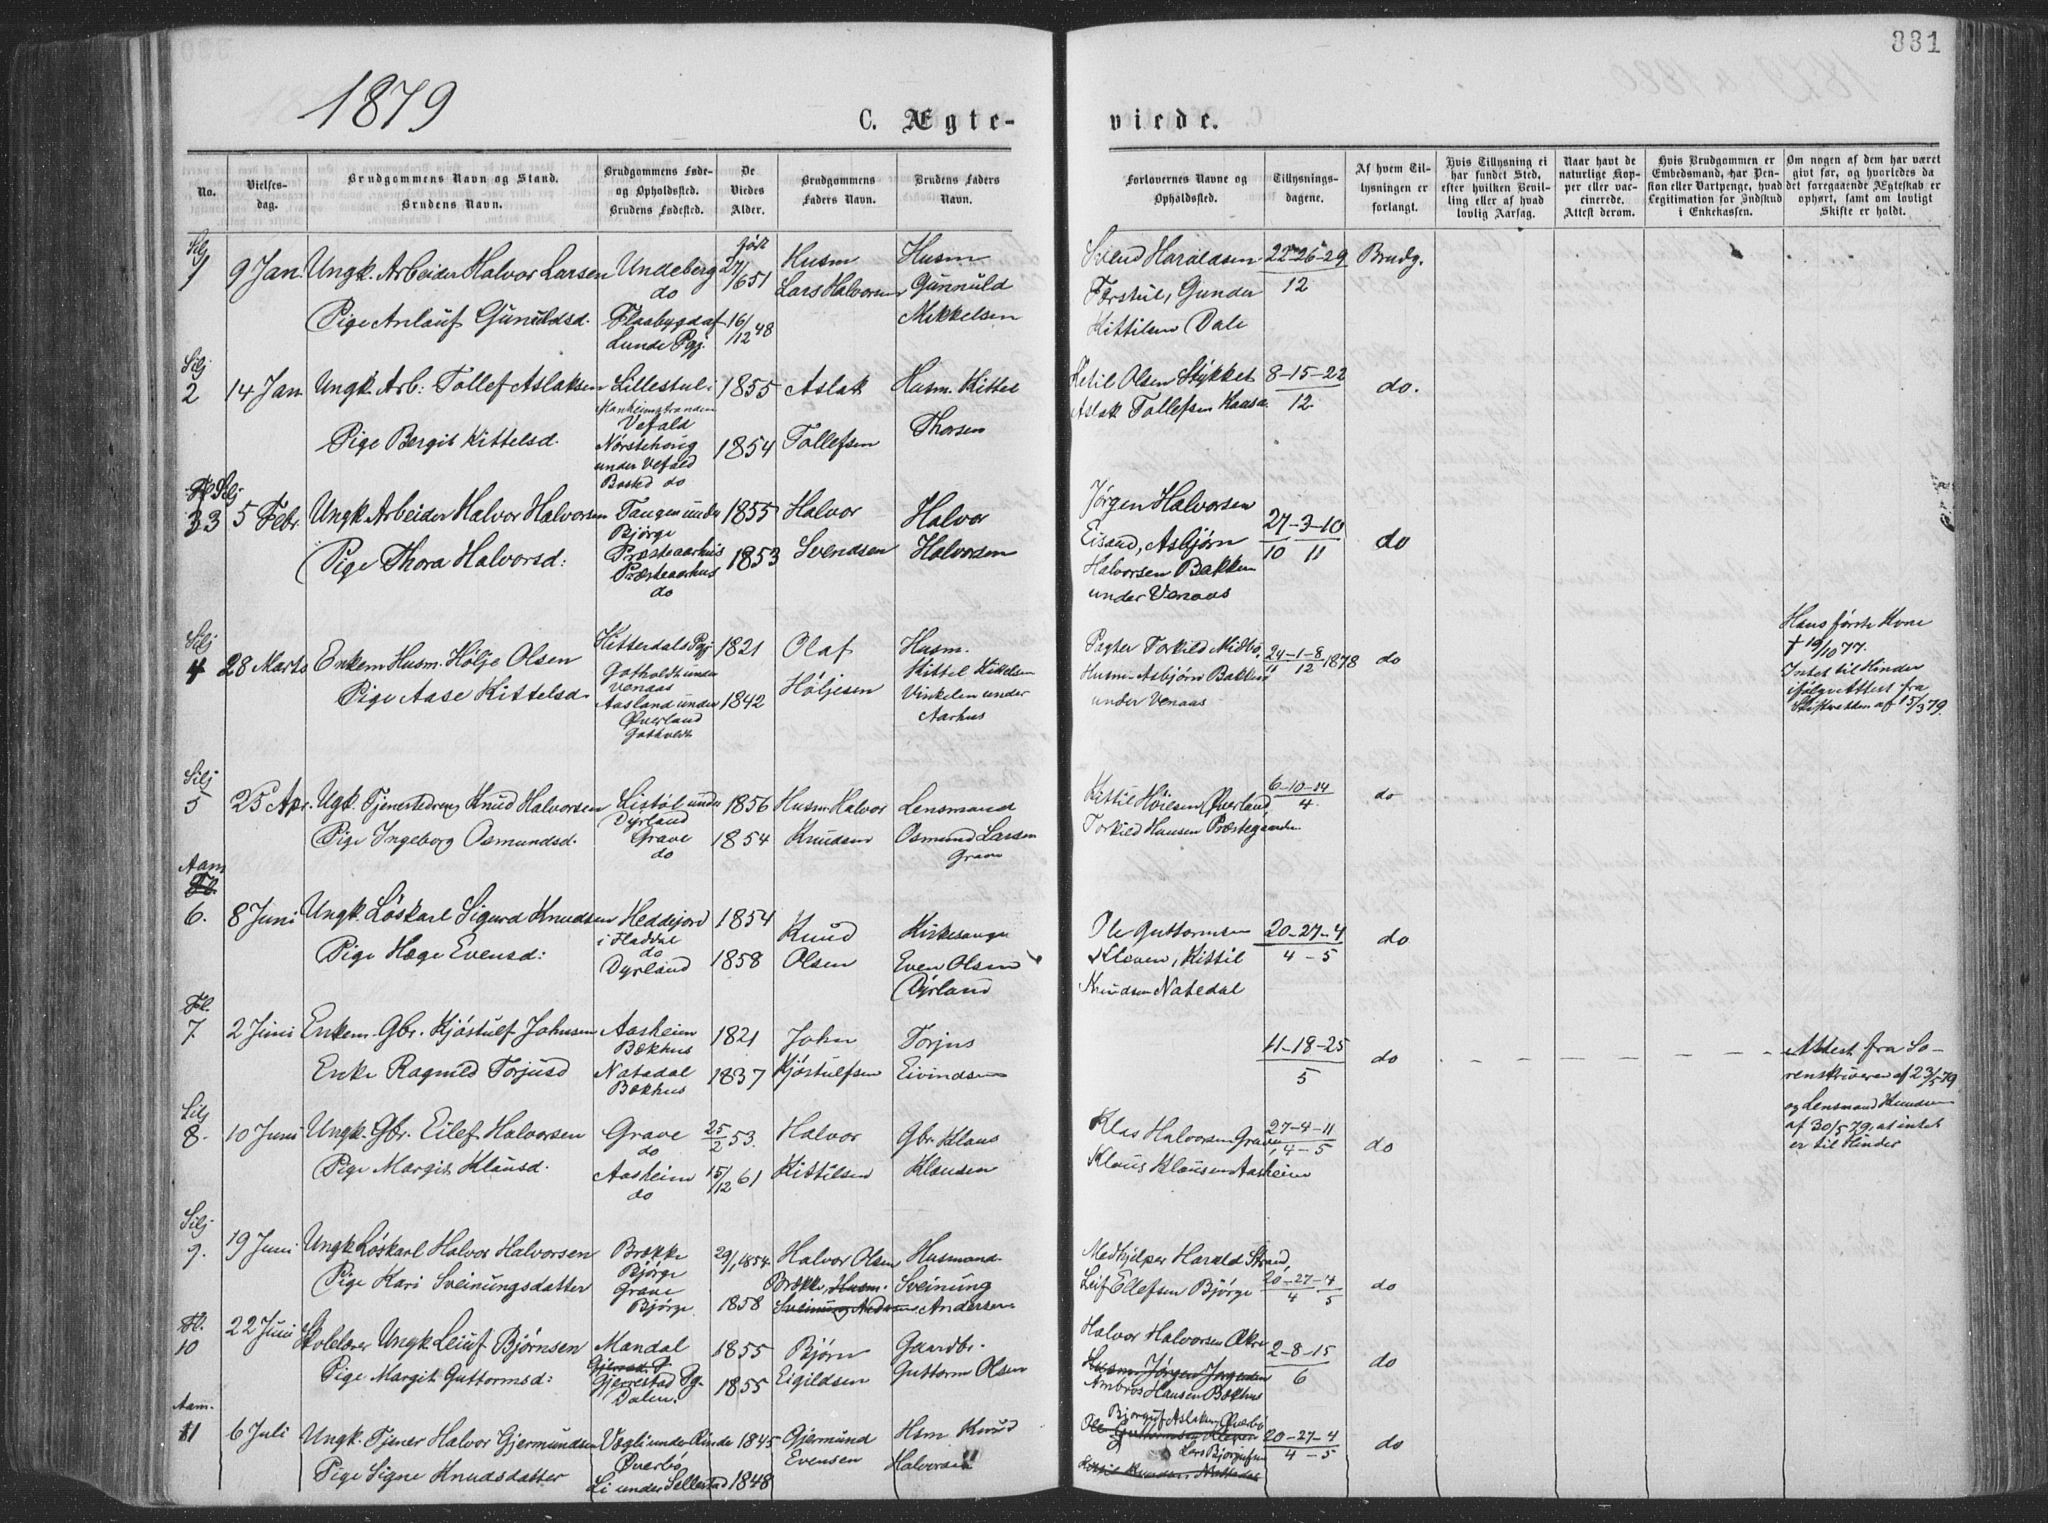 331
1879
C. Ægte-
viede.
No.
Vielses-
dag.
Brudgommens Navn og Stand.
Brudens Navn.
Brudgommens Føde-
og Opholdssted.
Brudens Fødested.
De
Viedes
Alder.
Brudgommens
Faders Navn.
Brudens Faders
Navn.
Forlovernes Navne og
Opholdssted.
Tillysnings-
dagene.
Af hvem Til-
lysningen er
forlangt.
Hvis Tillysning ei
har fundet Sted,
efter hvilken Bevil-
ling eller af hvad
lovlig Aarsag.
Naar havt de
naturlige Kop-
per eller var-
cinerede.
Attest derom.
Hvis Brudgommen er
Embedsmand, har Pen-
sion eller Vartpenge, hvad
Legitimation for Indskud
i Enkekassen.
Om nogen af dem har været
givt før, og hvorledes da
det foregaaende Ægteskab er
ophørt, samt om lovligt
Skifte er holdt.
Silj
1
9 Jan.
Ungk. Arbeider Halvor Larsen
Pige Anlauf Gunuldsd.
Undeberg
do
Flaabygd af
Lunde Pgj.
født
27/6 51
16/12 48
Husm
Lars Halvorsen
Husm
Gunnuld
Mikkelsen
Svend Haroldsen
Førstul, Gunder
Kittilsen Dale
22-26-29
12
Brudg.
Silj
2
14 Jan
Ungk. Arb: Tollef Aslaksen
Pige Bergit Kittelsd.
Lillestul i
Vefald
Nørstehoug
under Vefald
Bosted do
1855
1854
Aslak
Tollefsen
Husm. Kittel
Thorsen
Ketil Olsen Stykket
Aslak Tollefsen Kaasa
8-15-22
12
do.
Silj
3
5 Febr
Ungk. Arbeider Halvor Halvorsen
Pige Thora Halvorsd:
Tangen under
Bjørge
Præsteaarhus
Præsteaarhus
do
1855
1853
Halvor
Svendsen
Halvor
Halvorsen
Jørgen Halvorsen
Eisand, Asbjørn
Halvorsen Bakken
under Venaas
27-3-10
10 11
do
Silj
4
28 Marts
Enkem. Husm. Høljе Olsen
Pige Aase Kittelsd.
Hitterdals Pgj
Gotholdt under
Venaas
Aasland under
Øverland
Gotholdt
1821
1842
Olaf
Høljesen
Husm.
Kittel Kittelsen
Vinkelen under
Aarhus
Pagter Torkild Midbø,
Husm. Asbjørn Bakken
under Venaas
24-1-8
11 12 1878
do
Hans første Kone
† 19/10 77.
Intet til Hinder
ifølge Attest fra
Skifteretten af 15/3 79.
Silj
5
25 Apr.
Ugk. Tjenestedreng Knud Halvorsen
Pige Ingeborg Osmundsd.
Listøl under
Dyrland
Grave
do
1856
1854
Husm. Halvor
Knudsen
Lensmand
Osmund Larsen
Grave
Kittil Høiesen Øverland,
Torkild Hansen Præstegaarden
6-10-14
4
do
Aam
6.
8 Juni
Ungk. Løskarl Sigurd Knudsen
Pige Hæge Evensd:
Heddejord
i Fladdal
do
Dyrland
1854
1858
Knud
Olsen
Kirkesanger
Even Olsen
Dyrland
Ole Guttormsen
Kleven, Kittil
Knudsen Natedal
20-27-4
4-5
do
Fl.
7
2 Juni
Enkem. Gbr. Kjøstulf Johnsen
Enke Ragnild Torjusd
Aasheim
Bækhus
Natadal
Bækhus
1821
1837
John
Kjøstulfsen
Torjus
Eivindsen
11-18-25
5
do
Attest fra So-
renskriveren af 23/5 79
og Lensmand Knudsen
af 30/5 79, at intet
er til Hinder
Silj
8.
10 Juni
Ungk. Gbr. Eilef Halvorsen
Pige Margit Klausd.
Grave
do
Aasheim
do
25/2 53.
15/12 61
Halvor
Kittilsen
Gbr. Klaus
Klausen
Klas Halvorsen Grave,
Klaus Klausen Aasheim
27-4-11
4-5
do
Silj
9.
19 Juni
Ungk. Løskarl Halvor Halvorsen
Pige Kari Sveinungsdatter
Brække
Bjørge
Grave
Bjørge
29/1 1854
1858
Halvor Olsen
Brække, Husm.
Husmand
Sveinung
Andersen
Medhjelper Harald Strand,
Leif Ellefsen Bjørge
20-27-4
4 5
do
Fl.
10
22 Juni
Skolelærer Ungk. Leiuf Bjørnsen
Pige Margit Guttormsd:
Mandal
Gjerrestad Pg.
Dalen.
1855
1855
Bjørn
Eigildsen
Gaardbr.
Guttorm Olsen
Halvor Halvorsen Økre
Husm Jørgen Jørgensen
Ambros Hansen Bækhus
2-8-15
6
do
Aam.
11
6 Juli
Ungk. Tjener Halvor Gjermundsen
Pige Signe Knudsdatter
Vegli under Rinde
Øverbø
Li under Sellestad
1845
1848
Gjermund
Evensen
Hsm Knud
Halvorsen
Bjørguf Aslaksen Øverbø
Ole Guttormsen Kleven
Lars Bjørgufsen
20-27-4
4-5
do